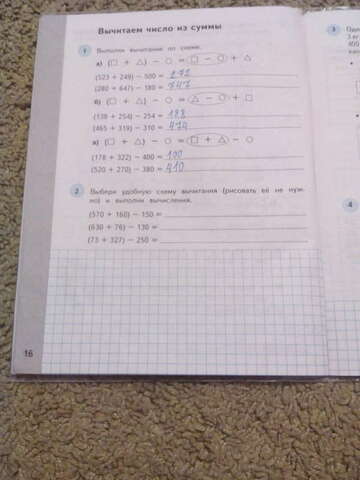 Вычитаем число из суммы
1 Выполни вычитание по схеме.
а) (□ + △) − ○ = □ − ○ + △
(523 + 249) − 500 = 272
(280 + 647) − 180 = 747
б) (□ + △) − ○ = △ − ○ + □
(138 + 254) − 254 = 138
(465 + 319) − 310 = 474
в) (□ + △) − ○ = □ + △ − ○
(178 + 322) − 400 = 100
(520 + 270) − 380 = 410
2 Выбери удобную схему вычитания (рисовать её не нуж-
но) и выполни вычисления.
(570 + 160) − 150 =
(630 + 76) − 130 =
(73 + 327) − 250 =
16
3
4